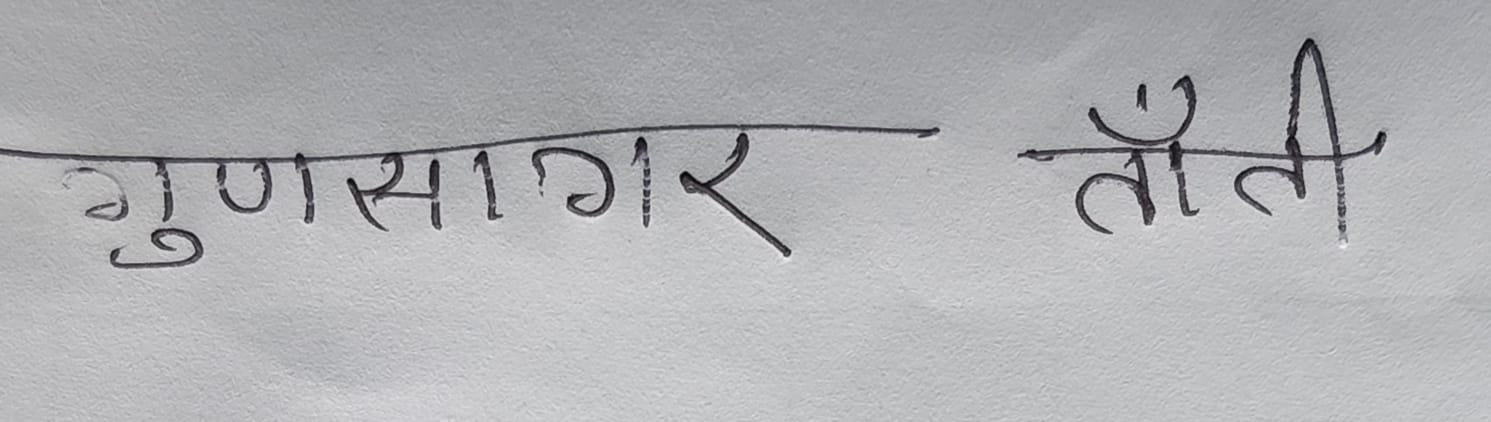 गुणसागर ताँती